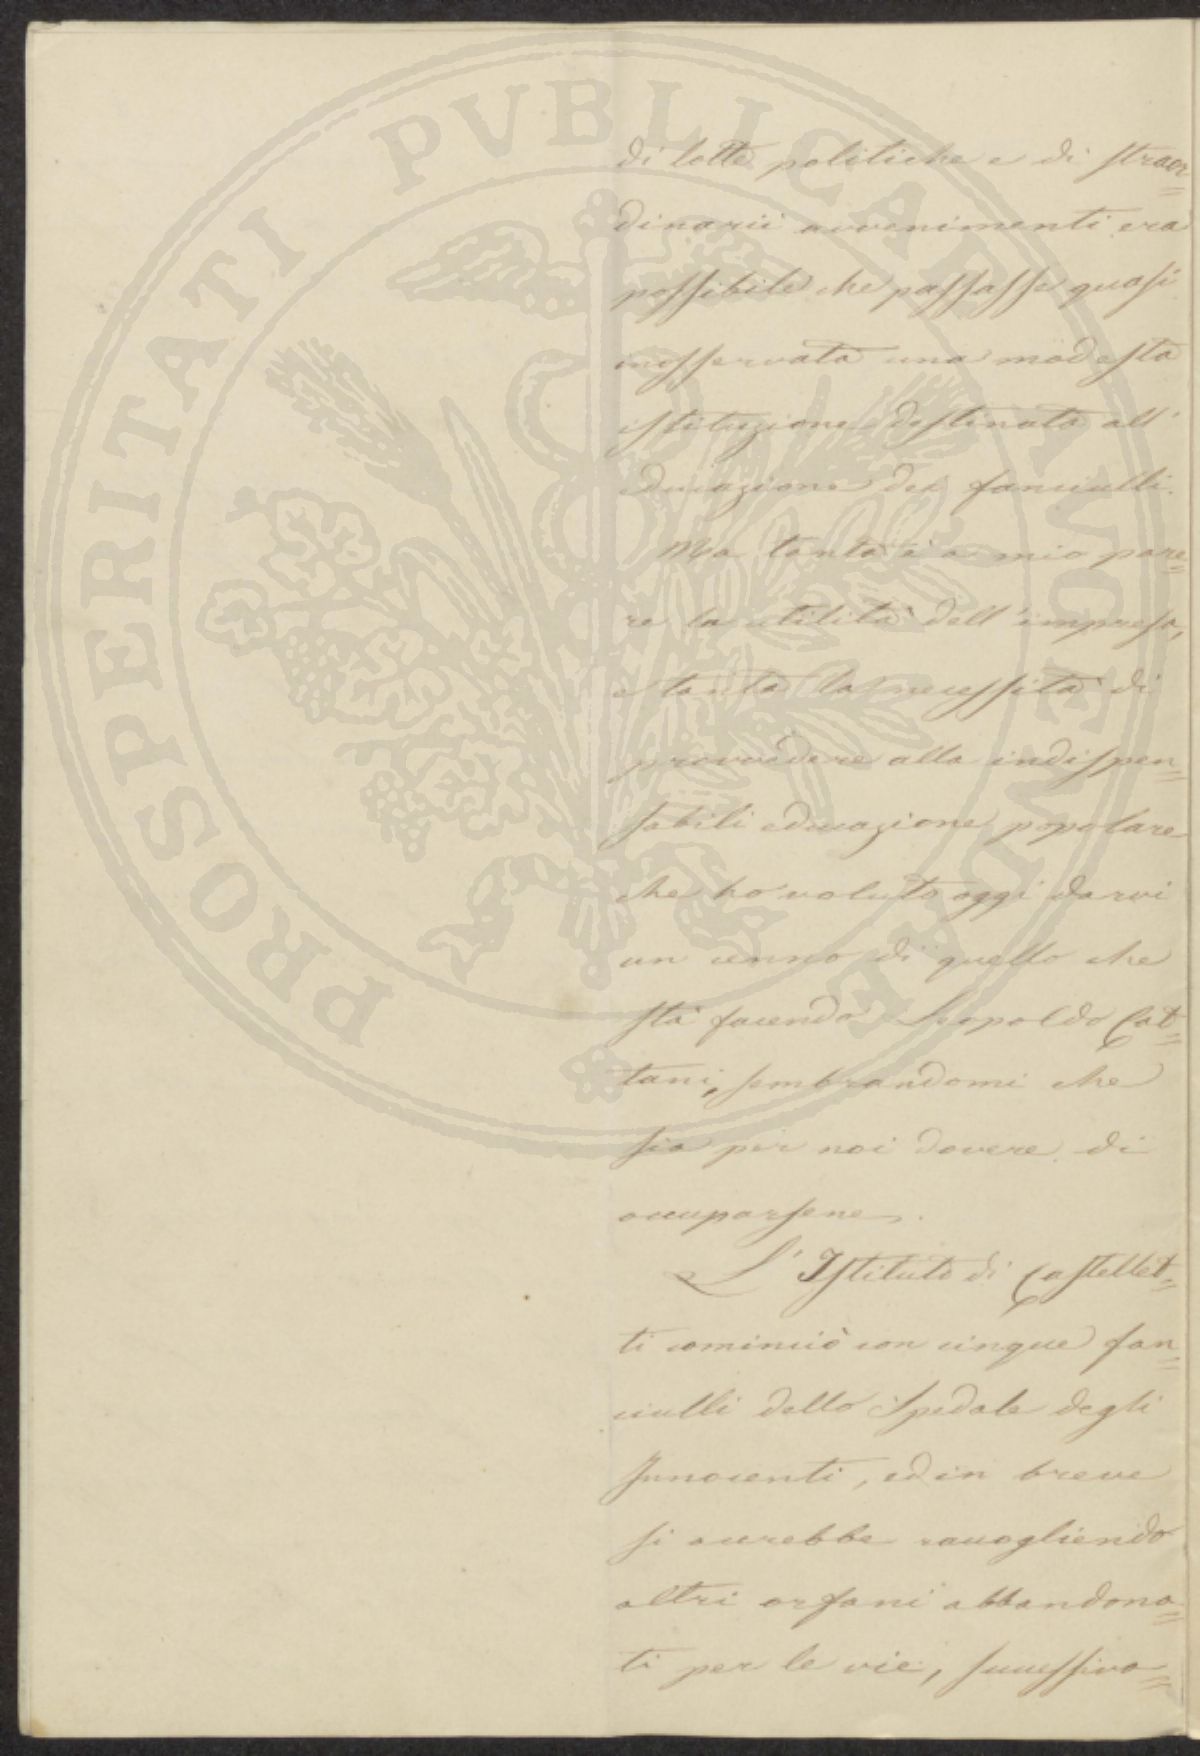 PROSPERITATI PVBLICAE AVGENDAE
di lotte politiche e di straor=
dinarii avvenimenti era
possibile che passasse quasi
inosservata una modesta
istituzione destinata all'
educazione dei fanciulli.
Ma tanta è a mio pare=
re la utilità dell'impresa,
e tanta la necessità di
provvedere alla indispen=
sabili educazione popolare
che ho voluto oggi darvi
un cenno di quello che
sta facendo Leopoldo Cat=
tani, sembrandomi che
sia per noi dovere di
occuparsene.
L'Istituto di Castellet=
ti cominciò con cinque fan=
ciulli dello Spedale degli
Innocenti, ed in breve
si accrebbe raccogliendo
altri orfani abbandona=
ti per le vie, successiva=